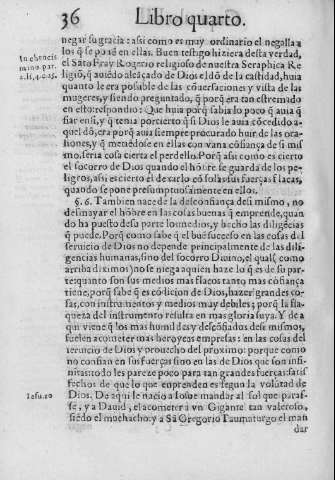 36 Libro quarto.
negar su gracia: assi como es muy ordinario el negalla a
los q̃ se ponē en ellas. Buen testigo hiziera desta verdad,
el Sāto Fray Rogerio religioso de nuestra Seraphica Re
ligiō, q̃ auiēdo alcāçado de Dios el dō de la castidad, huia
quanto le era possible de las cōuersaciones y vista de las
mugeres, y siendo preguntado, q̃ porq̃ era tan estremado
en esto: respondio: Que huia porq̃ sabia lo poco q̃ auia q̃
fiar en si, y q̃ tenia por cierto q̃ si Dios le auia cōcedido a-
quel dō, era porq̃ auia siempre procurado huir de las ora
siones, y q̃ meniēdose en ellas con vana cōfiança de si mis
mo, seria cosa cierta el perdello. Porq̃ assi como es cierto
el socorro de Dios quando el hōbre se guarda de los pe-
ligros, assi es cierto el dexarlo cō solas sus fuerças flacas,
quando se pone presumptuosamente en ellos.
§. 6. Tambien nace de la desconfiança de si mismo, no
desmayar el hōbre en las cosas buenas q̃ emprende, quan
do ha puesto de su parte los medios, y hecho las diligēcias
q̃ puede. Porq̃ como sabe q̃ el buē sucesso en las cosas del
seruicio de Dios no depende principalmente de las dili-
gencias humanas, sino del socorro Diuino, el qual (como
arriba diximos) no se niega a quien haze lo q̃ es de su par-
te: quanto son sus medios mas flacos tanto mas cōfiança
tiene, porq̃ sabe q̃ es cōdicion de Dios, hazer grandes co-
sas, con instrumentos y medios muy debiles; porq̃ la fla-
queza del instrumento resulta en mas gloria suya. Y de a
qui viene q̃ los mas humildes y descōfiados de si mismos,
suelen acometer mas heroycas empresas: en las cosas del
seruicio de Dios y prouecho del proximo: porque como
no confian en sus fuerças sino en las de Dios que son infi-
nitas: todo les parece poco para tan grandes fuerças: satis
fechos de que lo que emprenden es segun la volūtad de
Dios. De aqui le nacio a Iosue mandar al sol que paras-
se, y a Dauid, el acometer a vn Gigante tan valeroso,
siēdo el muchacho: y a Sā Gregorio Taumaturgo el man
dar
In chronicis
mino par.
Iosu. 10